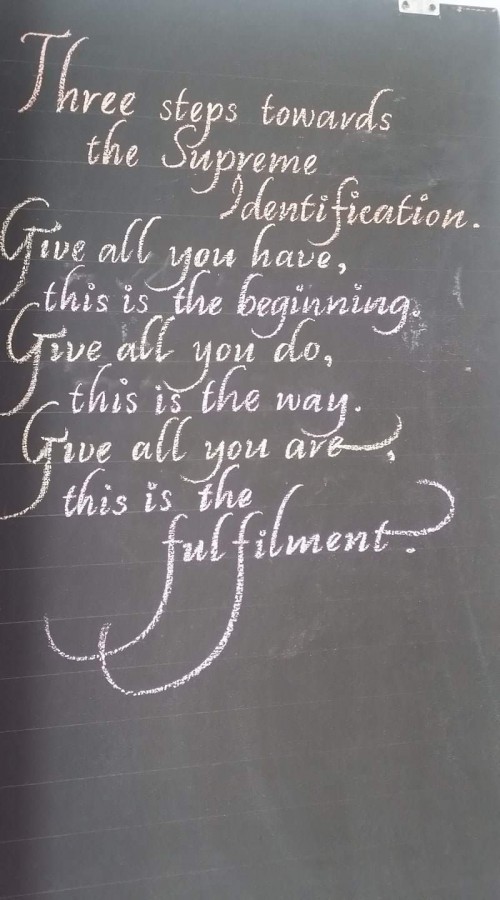 Three steps towards
the Supreme
Identification.
Give all you have,
this is the beginning.
Give all you do,
this is the way.
Give all you are,
this is the
fulfilment.